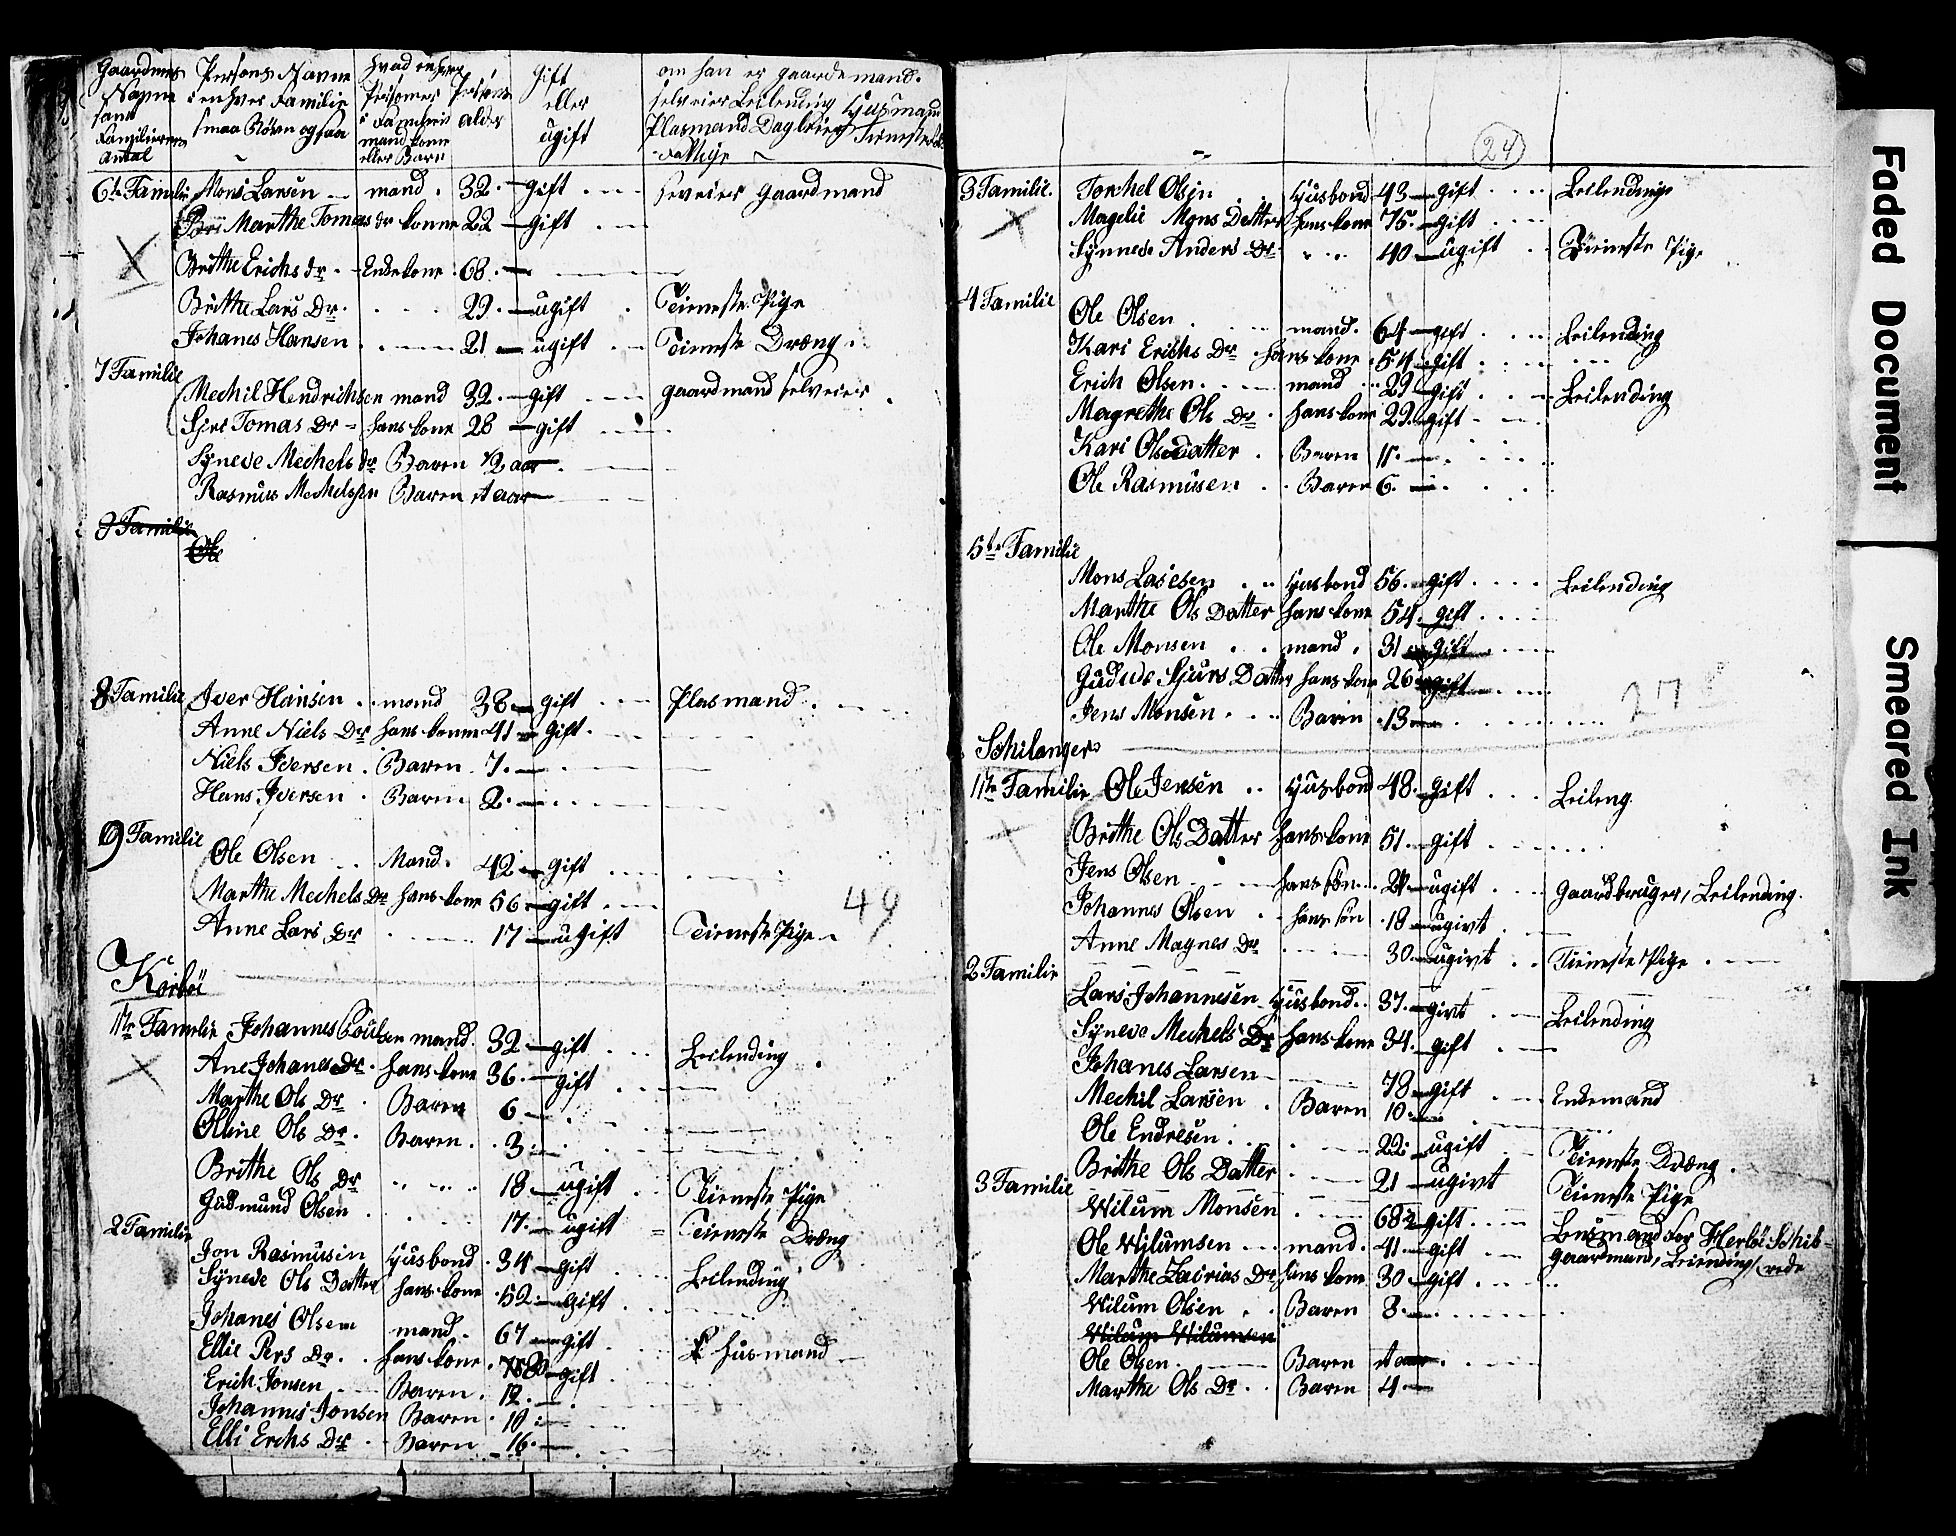 Gaardnes Persons Navne hvad enhver Persons Gift om han er gaardemand.
Navne i enhver Familie Personer alder eller selveier Leilending Husmand
samt smaa Børn ogsaa i Familie ugift Plasmand Dagleier Tieneste
Familiernes mand kone
Antal eller Barn
6te Familie Mons Larsen mand 32 gift seveier gaardmand
Marthe Tomas dr konne 22 gift
Brithe Erichs dr Enkekone 68
Brithe Lars Dr 29 ugift Tieneste Pige
Johanes Hansen 21 ugift Tieneste Dræng
7 Familie
Mechil Hendrichsen mand 32 gift gaardmand selveier
Siri Tomas Dr hans kone 28 gift
Syneve Mechels dr Baren 1/2 aar
Rasmus Mechelsen Baren aar
8 Familie
Ole
8 Familie Iver Hansen mand 38 gift Plasmand
Anne Niels Dr hans konne 41 gift
Niels Iversen Baren 7
Hans Iversen Baren 2
9 Familie
Ole Olsen Mand 42 gift
Marthe Mechels Dr hans kone 56 gift
49
Anne Lars Dr 17 ugift Tieneste Pige
1te Familie Johannes Poulsen mand 32 gift Leilending
Ane Johanes Dr hans kone 36 gift
Marthe Ols Dr Baren 6
Oline Ols Dr Baren 3
Brithe Ols Dr 18 ugift Tieneste Pige
Gudmund Olsen 17 ugift Tieneste Dræng
2 Familie
Jon Rasmusen Husbond 34 gift Leilending
Synede Ols Datter hans kone 52 gift
Johanes Olsen mand 67 gift husmand
Ellie Pers Dr hans kone gift
Erich Jonsen Baren 12
Johannes Jonsen Baren 10
Elli Erichs Dr Baren 16
24
3 Familie Torchel Olsen Husbond 43 gift Leilending
Magelie Mons Datter hans kone 75 gift
Synneve Anders Dr 40 ugift Tieneste Pige
4 Familie
Ole Olsen mand 64 gift Leilending
Kari Erichs Dr hans kone 54 gift
Erich Olsen mand 29 gift Leilending
Magrethe Ols Dr hans kone 29 gift
Kari Ols Datter Baren 11
Ole Rasmusen Baren 6
5te Familie
Mons Lassesen Husbond 56 gift Leilending
Marthe Ols Datter hans kone 54 gift
Ole Monsen mand 31 gift
Gudve Sjurs Datter hans kone 26 gift
27
Jens Monsen Baren 13
Schilanger
1te Familie Ole Jensen Husbond 48 gift Leileng
Brithe Ols Datter hans kone 51 gift
Jens Olsen hans søn ugift Gaardbruger, Leilending
Johannes Olsen hans søn 18 ugivt
Anne Magnes Dr 30 ugivt Tieneste Pige
2 Familie
Lars Johannesen Husbond 37 givt Leilending
Syneve Mechels Dr hans kone 34 gift
Johanes Larsen 78 gift Enkemand
Mechil Larsen Baren 10
Ole Endresen 22 ugift Tieneste Dræng
Brithe Ols Datter 21 ugivt Tieneste Pige
3 Familie
Wilum Monsen 68 gift Lensmand for Herløe Schib
Ole Wilumsen mand 41 gift gaardmand, Leiending rede
Marthe Zacrias Dr hans kone 30 gift
Wilum Olsen Baren 8
Wilum Wilumsen
Ole Olsen Baren aar
Marthe Ols Dr Baren 4
Faded Document
Smeared Ink